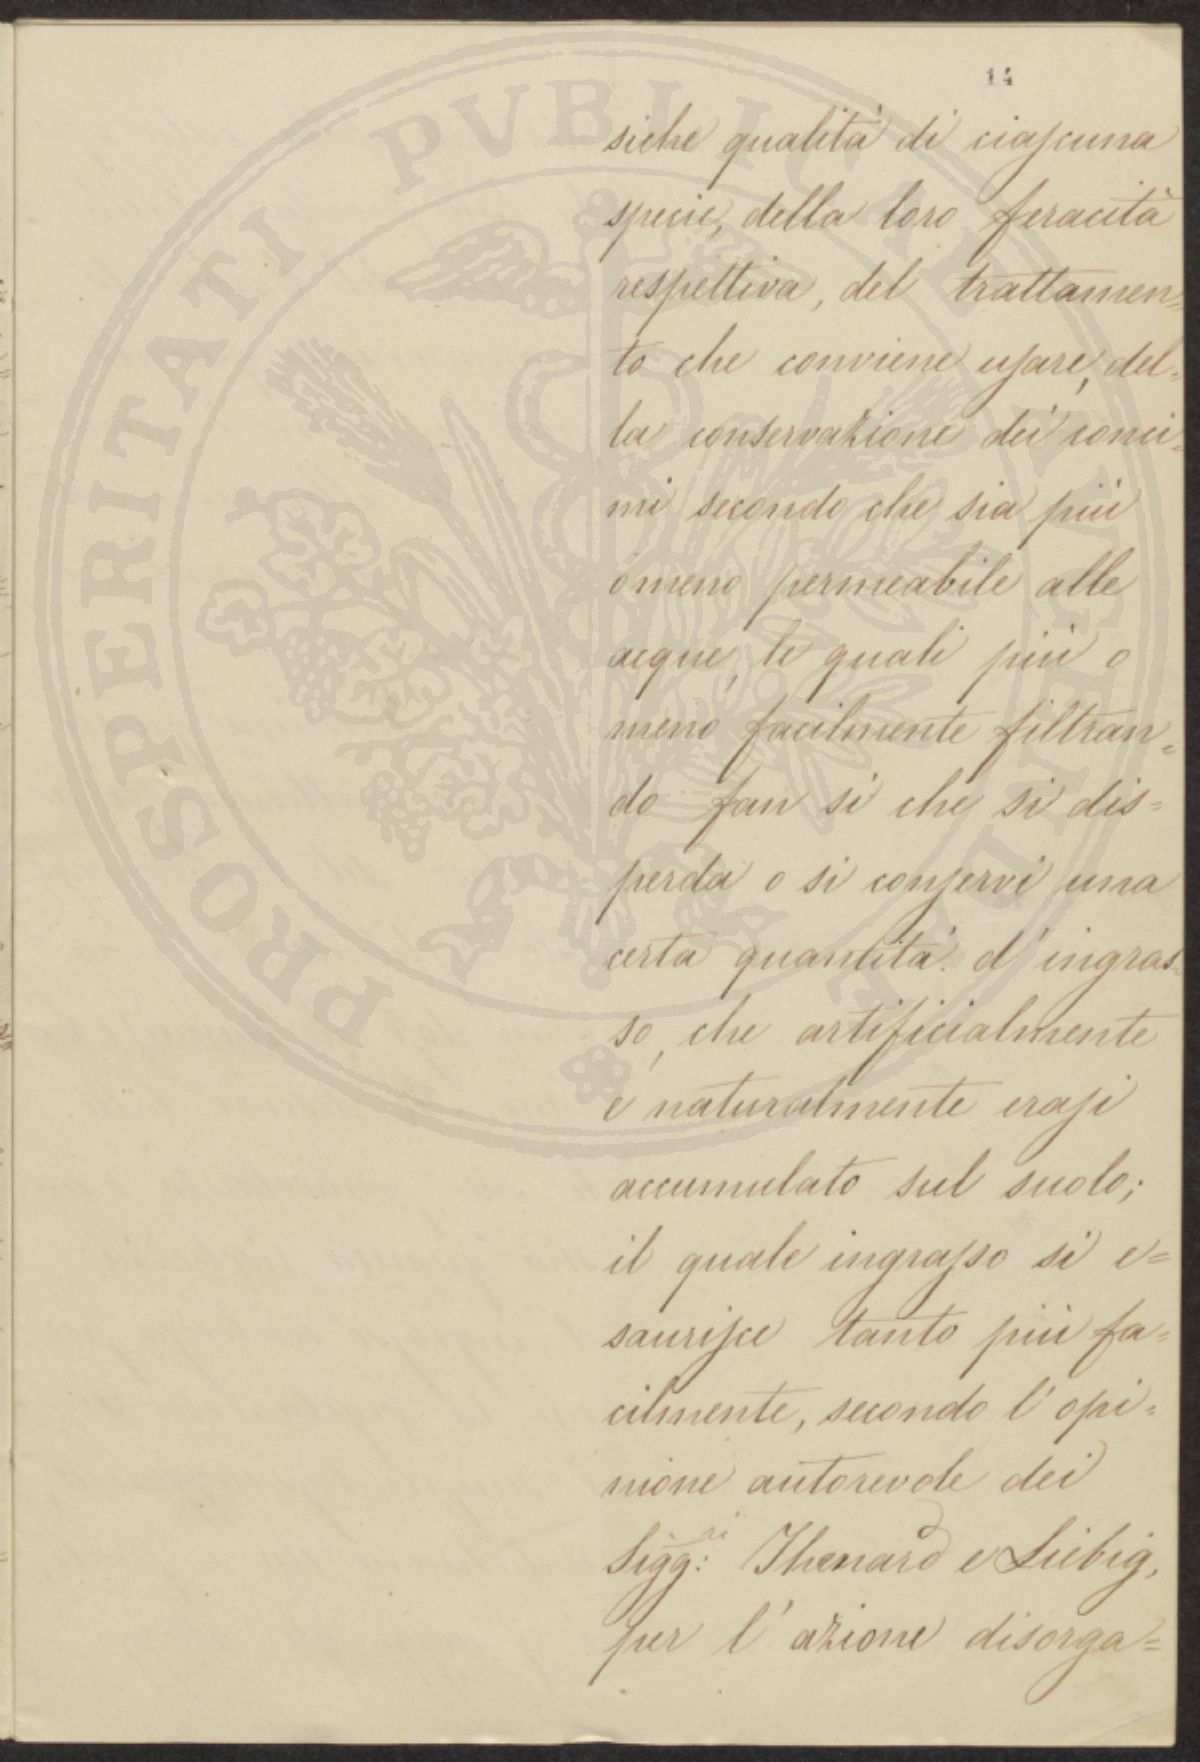 14
siche qualità di ciascuna
specie, della loro feracità
respettiva, del trattamen=
to che conviene usare, del=
la conservazione dei conci=
mi secondo che sia più
o meno permeabile alle
acque, le quali più o
meno facilmente filtran=
do fan sì che si dis=
perda o si conservi una
certa quantità d'ingras=
so, che artificialmente
e naturalmente erasi
accumulato sul suolo;
il quale ingrasso si e=
saurisce tanto più fa=
cilmente, secondo l'opi=
nione autorevole dei
Sigg:ri Thenard e Liebig,
per l'azione disorga=
PROSPERITATI PVBLICAE